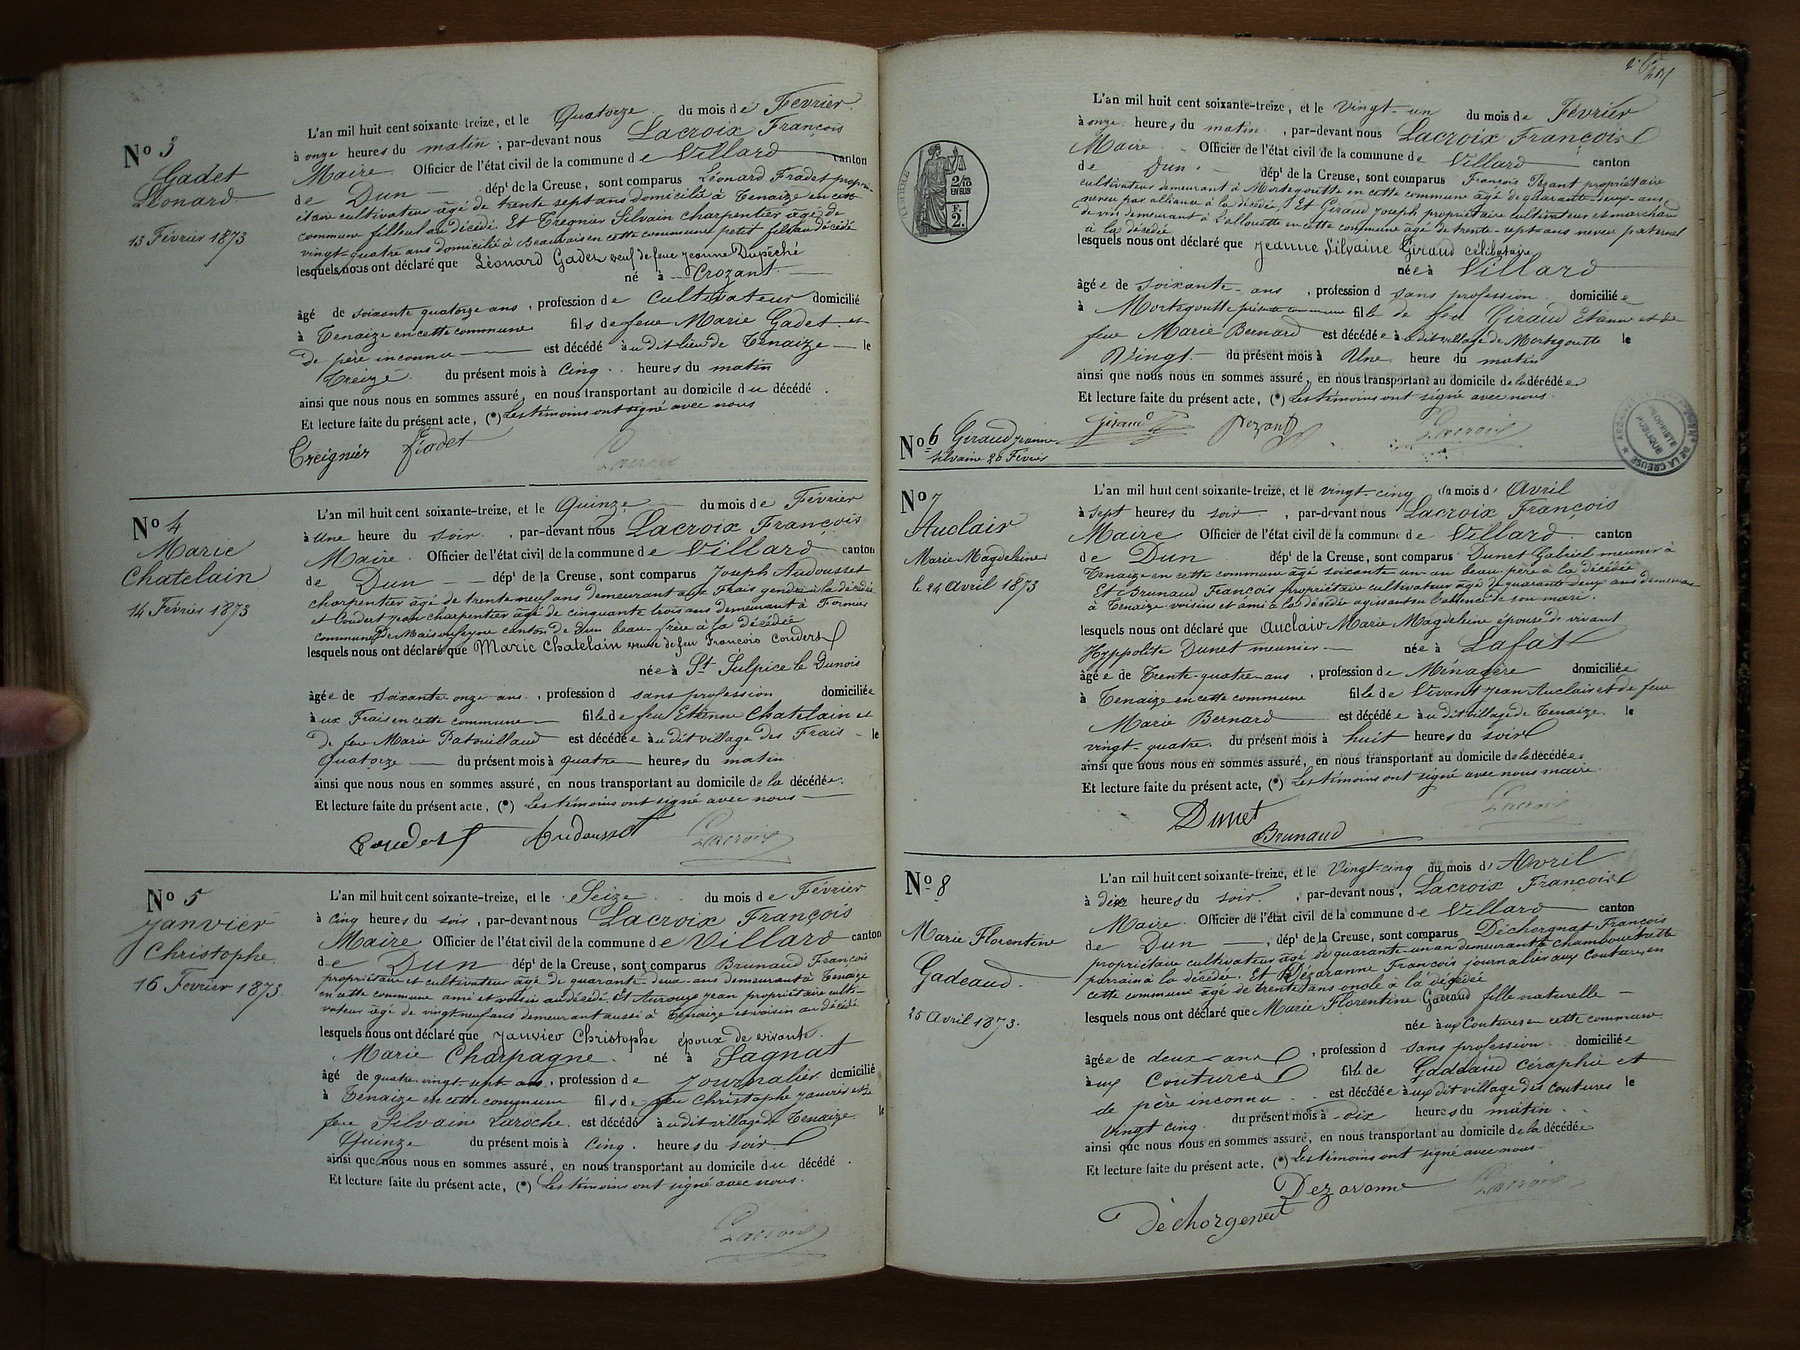 No 3
Gadet
Léonard
13 Février 1873
L'an mil huit cent soixante-treize, et le Quatorze du mois de Février
à onze heures du matin, par-devant nous Lacroix François
Maire Officier de l'état civil de la commune de Villard canton
de Dun dépt de la Creuse, sont comparus Léonard Fradet propri-
étaire cultivateur âgé de trente sept ans domicilié à Tenaize en cette
commune filleul au décédé Et Treignier Silvain charpentier âgé de
vingt-quatre ans domicilié à Beauvais en cette commune petit fils au décédé
lesquels nous ont déclaré que Léonard Gadet veuf de feue Jeanne Dupeché
né à Crozant
âgé de soixante quatorze ans, profession de Cultivateur domicilié
à Tenaize en cette commune fils de feue Marie Gadet et
de père inconnu est décédé au dit lieu de Tenaize le
Treize du présent mois à Cinq heures du matin
ainsi que nous nous en sommes assuré, en nous transportant au domicile du décédé.
Et lecture faite du présent acte, (*) Les témoins ont signé avec nous
Treignier Fradet Lacroix
No 4
Marie
Chatelain
14 Février 1873
L'an mil huit cent soixante-treize, et le Quinze du mois de Février
à Une heure du soir, par-devant nous Lacroix François
Maire Officier de l'état civil de la commune de Villard canton
de Dun dépt de la Creuse, sont comparus Joseph Audousset
charpentier âgé de trente neuf ans demeurant aux Frais gendre à la décédée
et Coudert Jean charpentier âgé de cinquante trois ans demeurant à Formes
commune De Maisonfeyne canton de Dun beau-frère à la décédée
lesquels nous ont déclaré que Marie Chatelain veuve de feu François Coudert
née à St Sulpice le Dunois
âgée de soixante onze ans, profession d sans profession domiciliée
à ux Frais en cette commune fille de feu Etienne Chatelain et
de feue Marie Patouillaud est décédée au dit village des Frais le
Quatorze du présent mois à quatre heures du matin
ainsi que nous nous en sommes assuré, en nous transportant au domicile de la décédée.
Et lecture faite du présent acte, (*) Les témoins ont signé avec nous
Coudert Audousset Lacroix
No 5
Janvier
Christophe
16 Février 1873
L'an mil huit cent soixante-treize, et le Seize du mois de Février
à cinq heures du soir, par-devant nous Lacroix François
Maire Officier de l'état civil de la commune de Villard canton
de Dun dépt de la Creuse, sont comparus Brunaud François
propriétaire et cultivateur âgé de quarante-deux-ans demeurant à Tenaize
en cette commune ami et voisin au décédé, Et Aurouze Jean propriétaire culti-
vateur âgé de vingt neuf ans demeurant aussi à Tenaize et voisin au décédé
lesquels nous ont déclaré que Janvier Christophe époux de vivante
Marie Charpagne né à Sagnat
âgé de quatre vingt-sept ans, profession de Journalier domicilié
à Tenaize en cette commune fils de feu Christophe Janvier et de
feue Silvaine Laroche est décédé au dit village de Tenaize le
Quinze du présent mois à Cinq heures du soir
ainsi que nous nous en sommes assuré, en nous transportant au domicile du décédé.
Et lecture faite du présent acte, (*) Les témoins ont signé avec nous.
Lacroix
TIMBRE
2/10
EN SUS
F.
2.
L'an mil huit cent soixante-treize, et le Vingt-un du mois de Février
à onze heures du matin, par-devant nous Lacroix François
Maire Officier de l'état civil de la commune de Villard canton
de Dun dépt de la Creuse, sont comparus François Pezant propriétaire
cultivateur demeurant à Mortegoutte en cette commune âgé de quarante-deux-ans
neveu par alliance à la décédée, Et Giraud Joseph propriétaire cultivateur et marchand
de vin demeurant à Lallouette en cette commune âgé de trente-sept ans neveu paternel
à la décédée
lesquels nous ont déclaré que Jeanne Silvaine Giraud célibataire
née à Villard
âgée de soixante-ans, profession d sans profession domiciliée
à Mortegoutte présente commune fille de feu Giraud Etienne et de
feue Marie Bernard est décédée au dit village de Mortegoutte le
Vingt du présent mois à Une heure du matin
ainsi que nous nous en sommes assuré, en nous transportant au domicile de la décédée
Et lecture faite du présent acte, (*) Les témoins ont signé avec nous.
No 6 Giraud Jeanne
Silvaine 20 Février
Giraud Pezant Lacroix
PROPRIÉTÉ
PUBLIQUE
DE LA CREUSE
No 7
Auclair
Marie Magdeleine
le 24 Avril 1873
L'an mil huit cent soixante-treize, et le vingt-cinq du mois d'Avril
à sept heures du soir, par-devant nous Lacroix François
Maire Officier de l'état civil de la commune de Villard canton
de Dun dépt de la Creuse, sont comparus Dunet Gabriel meunier à
Tenaize en cette commune âgé soixante un-an beau père à la décédée
Et Brunaud François propriétaire cultivateur âgé de quarante deux ans demeurant
à Tenaize voisins et ami à la décédée agissant en l'absence de son mari.
lesquels nous ont déclaré que Auclair Marie Magdeleine épouse de vivant
Hyppolite Dunet meunier née à Lafat
âgée de Trente-quatre-ans, profession de Ménagère domiciliée
à Tenaize en cette commune fille de vivant Jean Auclair et de feue
Marie Bernard est décédée au dit village de Tenaize le
vingt-quatre du présent mois à huit heures du soir
ainsi que nous nous en sommes assuré, en nous transportant au domicile de la décédée.
Et lecture faite du présent acte, (*) Les témoins ont signé avec nous maire
Dunet Lacroix
Brunaud
No 8
Marie Florentine
Gadeaud
25 Avril 1873.
L'an mil huit cent soixante-treize, et le Vingt-cinq du mois d'Avril
à dix heures du soir, par-devant nous, Lacroix François
Maire Officier de l'état civil de la commune de Villard canton
de Dun, dépt de la Creuse, sont comparus Déchorgnat François
propriétaire cultivateur âgé de quarante-un an demeurant à Chambourtrette
parrain à la décédée. Et Dézaranne François journalier aux Coutures en
cette commune âgé de trente ans oncle à la décédée
lesquels nous ont déclaré que Marie Florentine Gadeaud fille naturelle
née aux Coutures en cette commune
âgée de deux-ans, profession d sans profession domiciliée
aux Coutures fille de Gaddaud Céraphie et
de père inconnu est décédée aux dit village des Coutures le
Vingt cinq du présent mois à dix heures du matin
ainsi que nous nous en sommes assuré, en nous transportant au domicile de la décédée
Et lecture faite du présent acte, (*) Les témoins ont signé avec nous
Dezaranne Lacroix
Déchorgenat